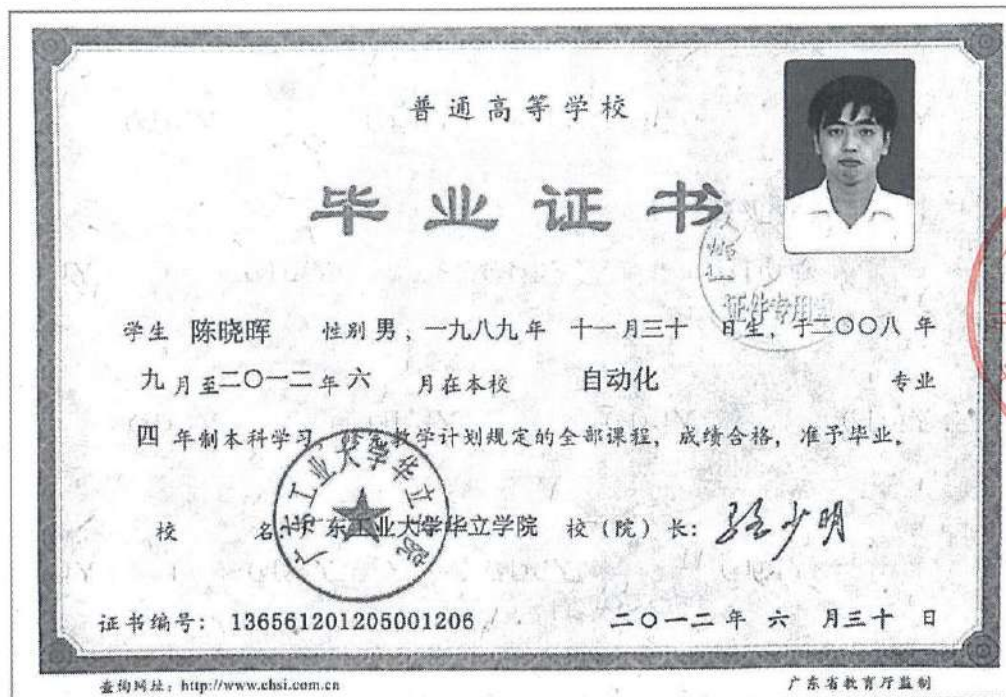 普通高等学校
毕业证书
证件专用章
学生 陈晓晖 性别 男，一九八九年 十一月三十 日生，于二〇〇八 年
九 月至二〇一二年 六 月在本校 自动化 专业
四 年制本科学习，修完教学计划规定的全部课程，成绩合格，准予毕业。
校 名：广东工业大学华立学院 校（院）长：
广东工业大学华立学院
证书编号：136561201205001206 二〇一二年 六 月三十 日
查询网址：http://www.chsi.com.cn 广东省教育厅监制